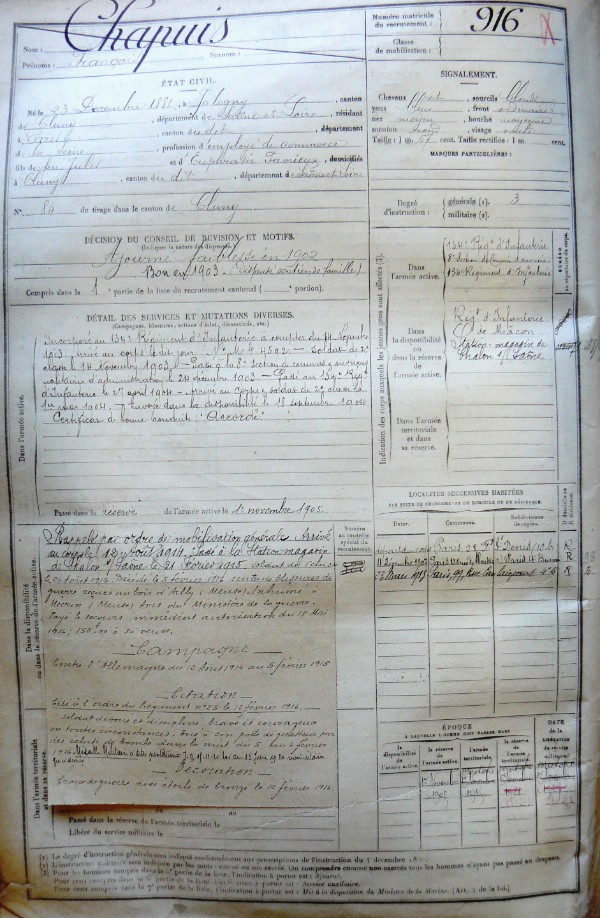 Nom : Chapuis
Prénoms : François Surnoms :
Numéro matricule du recrutement : 916
Classe de mobilisation :
ÉTAT CIVIL.
Né le 23 Décembre 1881, à , canton
de Cluny, département de Saône et Loire, résidant
à , canton de dit, département
de la Seine, profession d'employé de commerce
fils de feu et d' Euphrasie , domiciliés
à Cluny, canton du dit, département de Saône et Loire
N° 84 de tirage dans le canton de Cluny
SIGNALEMENT.
Cheveux , sourcils blonds
yeux , front ordinaire
nez moyen, bouche moyenne
menton , visage ovale
Taille : 1 m. 67 cent. Taille rectifiée : 1 m. cent.
MARQUES PARTICULIÈRES :
Degré d'instruction : générale (1). 3
militaire (2).
DÉCISION DU CONSEIL DE RÉVISION ET MOTIFS.
(Indiquer la nature des dispenses.)
Ajourné faiblesse en 1902
Bon en 1903. (Dispensé soutien de famille)
Compris dans la 1 partie de la liste du recrutement cantonal ( portion).
DÉTAIL DES SERVICES ET MUTATIONS DIVERSES.
(Campagnes, blessures, actions d'éclat, décorations, etc.)
Incorporé au 134e Régiment d'Infanterie à compter du 14 Novembre
1903. Arrivé au corps le dit jour. N° Mle 4502 – Soldat de 2e
classe le 14 Novembre 1903. – Passé à la 8e Section de commis et ouvriers
militaires d'administration le 24 décembre 1903 – Passé au 134e Régt
d'Infanterie le 1er 1904 – Arrivé au Corps & soldat de 2e classe le
1er 1904. – Envoyé dans la disponibilité le 18 septembre 1904
Certificat de bonne conduite "Accordé"
Dans l'armée active.
Passé dans la réserve de l'armée active le 1 novembre 1905.
Indication des corps auxquels les jeunes gens sont affectés (3).
Dans l'armée active.
134e Régt d'Infanterie
8e Section de Commis et ouvriers
134e Régiment d'Infanterie
Dans la disponibilité ou dans la réserve de l'armée active.
Régt d'Infanterie
de Mâcon
Station-magasin de
Chalon s/Saône
Dans l'armée territoriale et dans sa réserve.
Rappelé par ordre de mobilisation générale. Arrivé
au corps le 12 août 1914. Passé à la Station magasin
de Chalon s/Saône le 21 février 1915. soldat de 1e classe
le 1915. Décédé le 5 février 1916 suites blessures de
guerre reçues au bois d'Ailly (Meuse). Inhumé à
(Meuse) avis du Ministère de la guerre.
Payé le secours immédiat autorisation du 18 Mai
1916; 150f00 à sa veuve.
Campagne
Contre l'Allemagne du 12 Août 1914 au 5 février 1916
Citation
Cité à l'ordre du Régiment N° 25 le 12 février 1916. –
soldat dévoué et discipliné, brave et courageux
en toutes circonstances. Tué à son poste de guetteur par
des éclats de bombe dans la nuit du 5 au 6 février
1916. Médaille Militaire
Décoration
Croix de guerre avec étoile de bronze le 12 février 1916.
Dans la disponibilité ou dans la réserve de l'armée active.
Dans l'armée territoriale et dans sa réserve.
Numéro au contrôle spécial du recrutement.
LOCALITÉS SUCCESSIVES HABITÉES
PAR SUITE DE CHANGEMENT DE DOMICILE OU DE RÉSIDENCE.
Dates. Communes. Subdivisions de région.
Paris 28 St Denis R
12 décembre 1907 Paris 4e Bureau R
23 Mars 1913 Paris, R
ÉPOQUE
À LAQUELLE L'HOMME DOIT PASSER DANS
la disponibilité de l'armée active. la réserve de l'armée active. l'armée territoriale. la réserve de l'armée territoriale. DATE de la LIBÉRATION du service militaire.
Passé dans la réserve de l'armée territoriale le
Libéré du service militaire le
(1) Le degré d'instruction générale sera indiqué conformément aux prescriptions de l'instruction du 4 décembre
(2) L'instruction militaire sera indiquée par les mots : exercé ou non exercé. On comprendra comme non exercés tous les hommes n'ayant pas passé au drapeau.
(3) Pour les hommes compris dans la 5e partie de la liste, l'indication à porter est : Ajourné.
Pour ceux compris dans la 6e partie de la liste, l'indication à porter est : Service auxiliaire.
Pour ceux compris dans la 7e partie de la liste, l'indication à porter est : Mis à la disposition du Ministre de la Marine. (Art. 4 de la loi.)